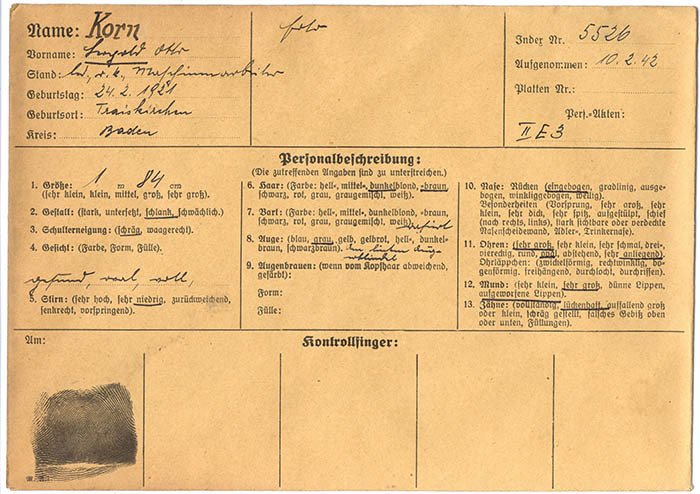 Name: Korn
Vorname: Leopold Otto
Stand: led., r. k., Maschinenarbeiter
Geburtstag: 24. 2. 1921
Geburtsort: Traiskirchen
Kreis: Baden
Index Nr. 5526
Aufgenommen: 10. 2. 42
Platten Nr.:
Pers.-Akten:
II E 3
Personalbeschreibung:
(Die zutreffenden Angaben sind zu unterstreichen.)
1. Größe: 1 m 84 cm
(sehr klein, klein, mittel, groß, sehr groß).
2. Gestalt: (stark, untersetzt, schlank, schwächlich.)
3. Schulterneigung: (schräg, waagerecht).
4. Gesicht: (Farbe, Form, Fülle).
gesund, oval, voll,
5. Stirn: (sehr hoch, sehr niedrig, zurückweichend,
senkrecht, vorspringend).
6. Haar: (Farbe: hell-, mittel-, dunkelblond, -braun,
schwarz, rot, grau, graugemischt, weiß).
7. Bart: (Farbe: hell-, mittel-, dunkelblond, -braun,
schwarz, rot, grau, graugemischt, weiß)
8. Auge: (blau, grau, gelb, gelbrot, hell-, dunkel-
braun, schwarzbraun). Am linken Auge
erblindet
9. Augenbrauen: (wenn vom Kopfhaar abweichend,
gefärbt):
Form:
Fülle:
10. Nase: Rücken (eingebogen, gradlinig, ausge-
bogen, winkliggebogen, wellig).
Besonderheiten (Vorsprung, sehr groß, sehr
klein, sehr dick, sehr spitz, aufgestülpt, schief
(nach rechts, links), stark sichtbare oder verdeckte
Nasenscheidewand, Adler-, Trinkernase).
11. Ohren: (sehr groß, sehr klein, sehr schmal, drei-,
viereckig, rund, oval, abstehend, sehr anliegend).
Ohrläppchen: (zwickelförmig, rechtwinklig, bo-
genförmig, freihängend, durchlocht, durchrissen).
12. Mund: (sehr klein, sehr groß, dünne Lippen,
aufgeworfene Lippen).
13. Zähne: (vollständig, lückenhaft, auffallend groß
oder klein, schräg gestellt, falsches Gebiß oben
oder unten, Füllungen).
Am:
Kontrollfinger: